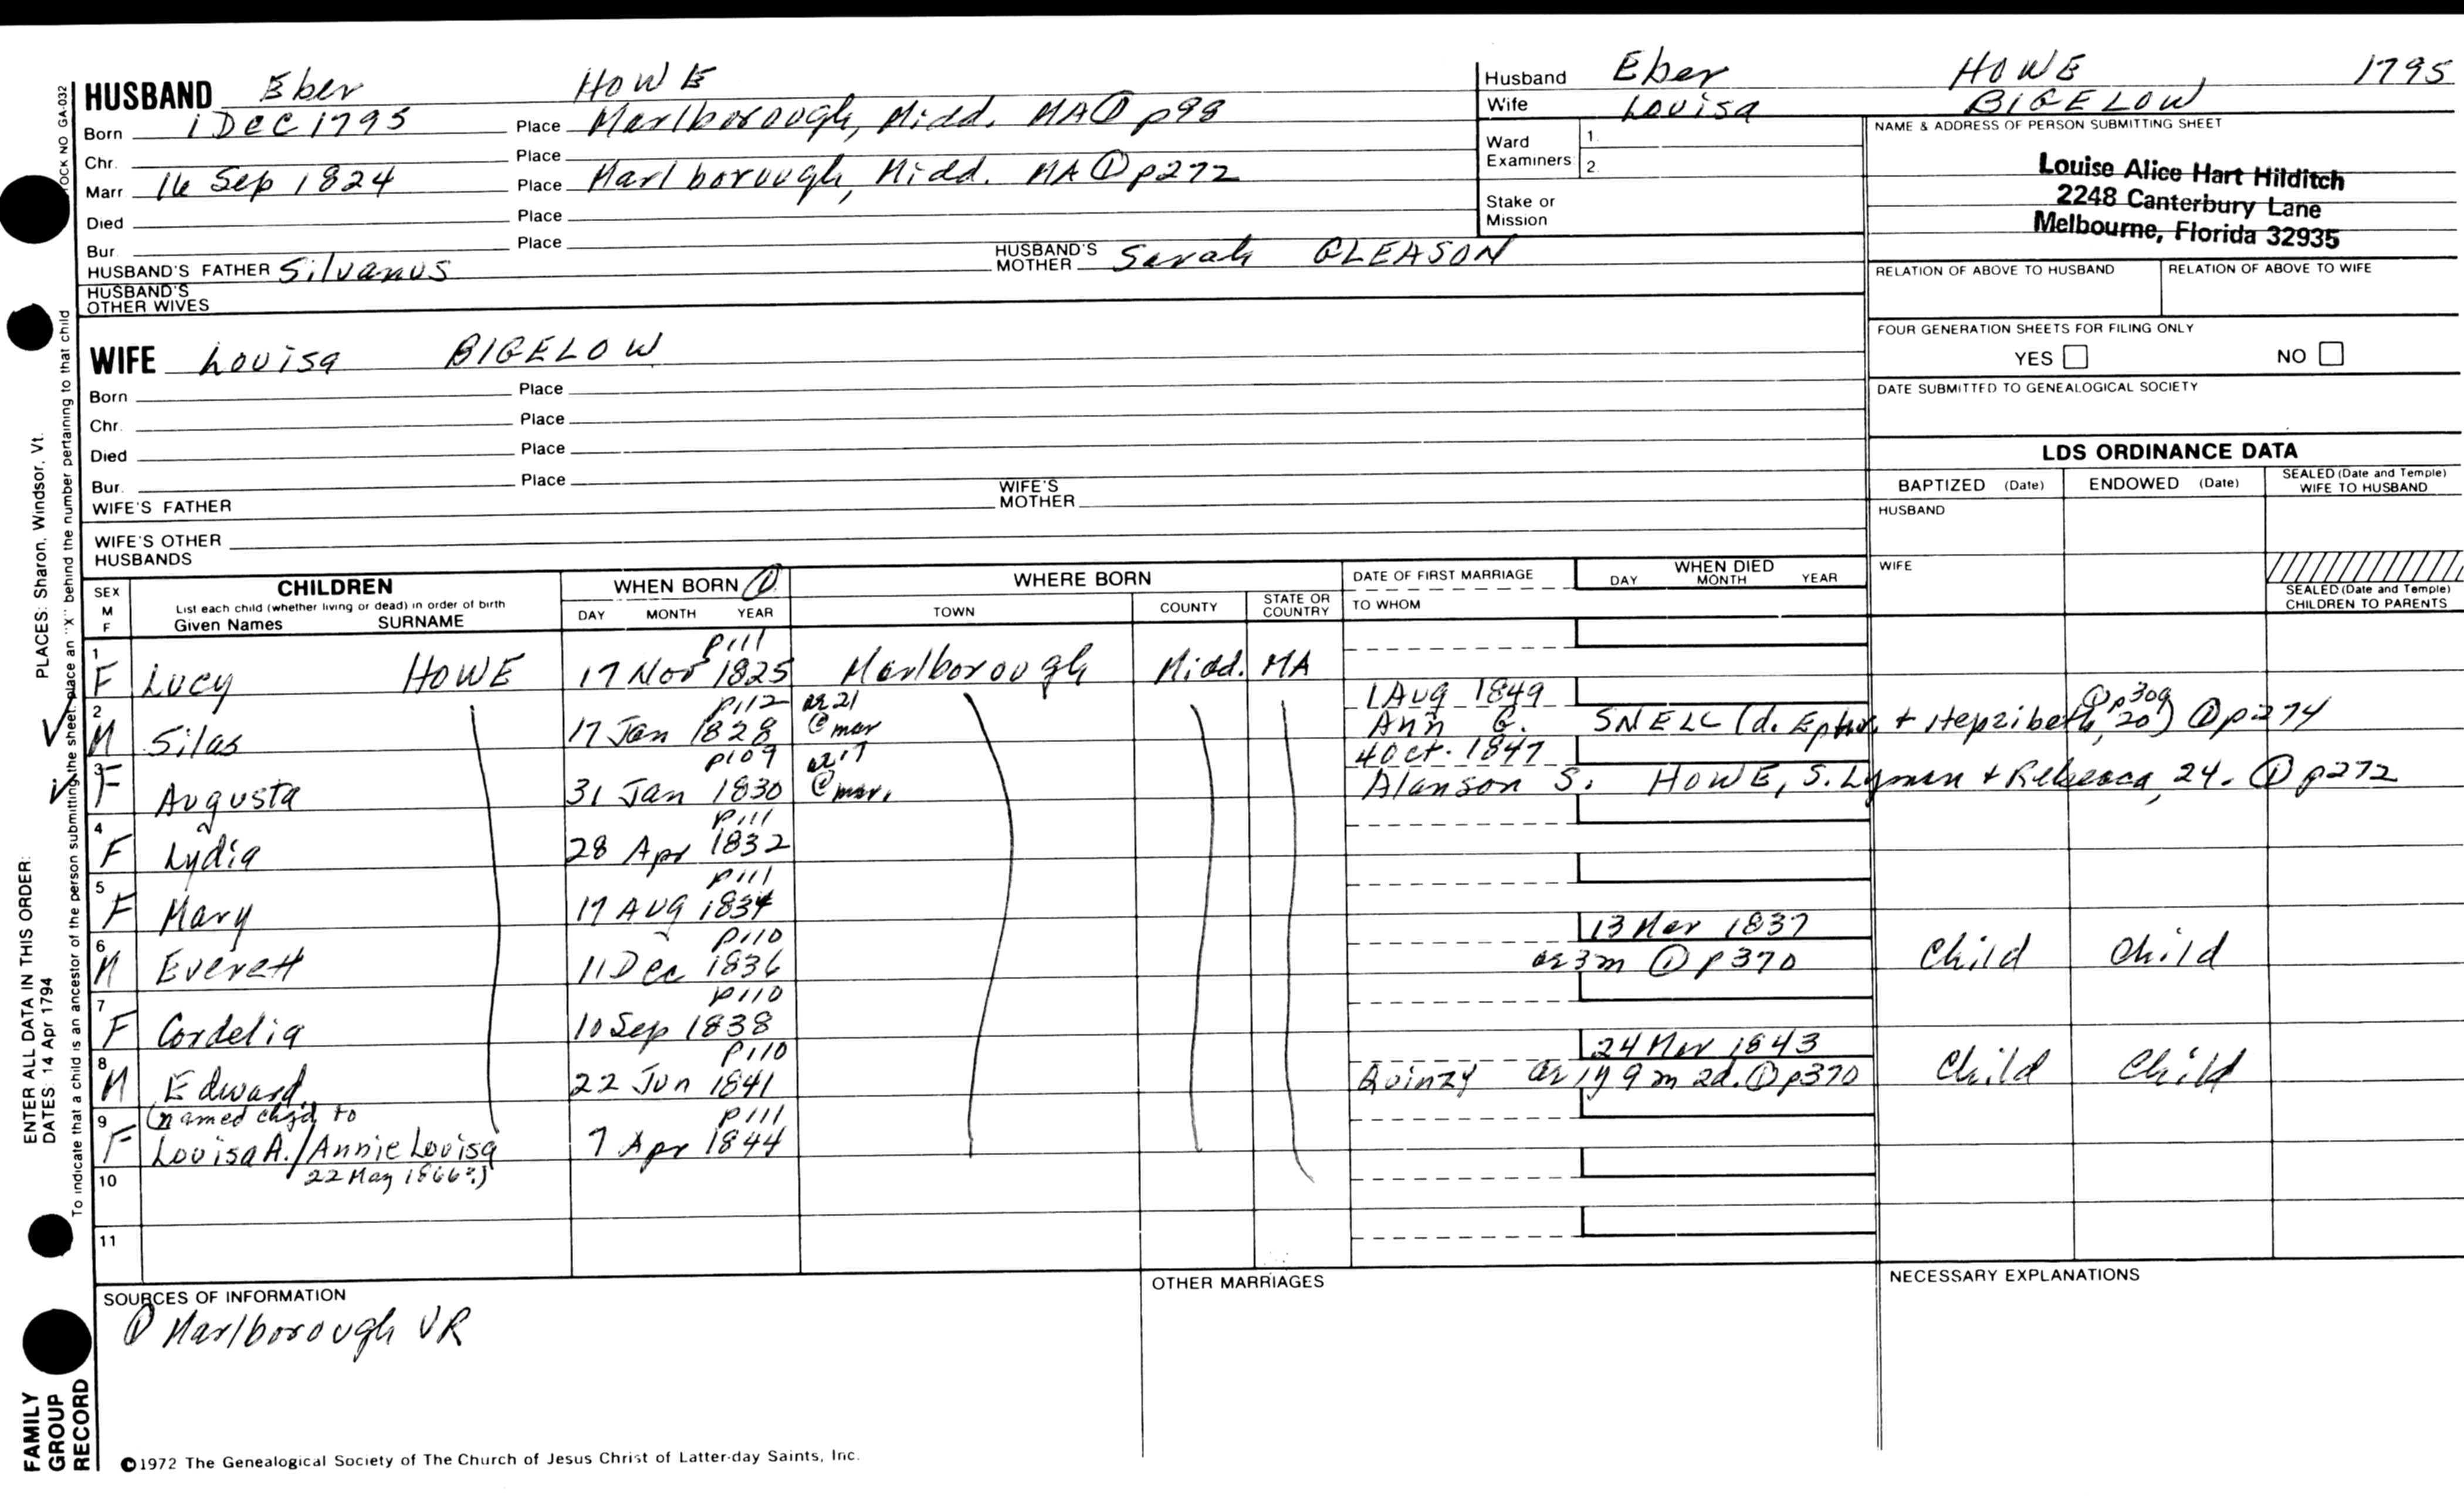 HUSBAND Eber HOWE
Born 1 DEC 1795 Place Marlborough, Midd. MA ① p98
Chr. Place
Marr 16 Sep 1824 Place Marlborough, Midd. MA ① p272
Died Place
Bur. Place
HUSBAND'S FATHER Silvanus HUSBAND'S MOTHER Sarah GLEASON
HUSBAND'S OTHER WIVES
Husband Eber HOWE, 1795
Wife Louisa BIGELOW
Ward Examiners 1. 2.
Stake or Mission
NAME & ADDRESS OF PERSON SUBMITTING SHEET
Louise Alice Hart Hilditch
2248 Canterbury Lane
Melbourne, Florida 32935
RELATION OF ABOVE TO HUSBAND RELATION OF ABOVE TO WIFE
FOUR GENERATION SHEETS FOR FILING ONLY
YES NO
DATE SUBMITTED TO GENEALOGICAL SOCIETY
WIFE Louisa BIGELOW
Born Place
Chr. Place
Died Place
Bur. Place
WIFE'S FATHER WIFE'S MOTHER
WIFE'S OTHER HUSBANDS
LDS ORDINANCE DATA
BAPTIZED (Date) ENDOWED (Date) SEALED (Date and Temple) WIFE TO HUSBAND
HUSBAND
WIFE
SEALED (Date and Temple) CHILDREN TO PARENTS
SEX M F
CHILDREN
List each child (whether living or dead) in order of birth
Given Names SURNAME
WHEN BORN ①
DAY MONTH YEAR
WHERE BORN
TOWN COUNTY STATE OR COUNTRY
DATE OF FIRST MARRIAGE
TO WHOM
WHEN DIED
DAY MONTH YEAR
p111
1 F Lucy HOWE 17 Nov 1825 Marlborough Midd. MA
p112 ae 21 1 Aug 1849 ① p309
2 M Silas 17 Jan 1828 @ mar Ann G. SNELL (d. Ephr. + Hepzibeth, 20) ① p274
p109 ae 17 4 Oct. 1847
3 F Augusta 31 Jan 1830 @ mar. Alanson S. HOWE, S. Lyman + Rebecca, 24. ① p272
p111
4 F Lydia 28 Apr 1832
p111
5 F Mary 17 AUG 1834
p110 13 Mar 1837
6 M Everett 11 Dec 1836 ae 3m ① p370 Child Child
p110
7 F Cordelia 10 Sep 1838
p110 24 Mar 1843
8 M Edward 22 Jun 1841 Quinzy ae 1y 9m 2d. ① p370 Child Child
(named chgd to p111
9 F Louisa A./Annie Louisa 7 Apr 1844
10 22 May 1866?)
11
SOURCES OF INFORMATION
① Marlborough VR
OTHER MARRIAGES
NECESSARY EXPLANATIONS
©1972 The Genealogical Society of The Church of Jesus Christ of Latter-day Saints, Inc.
FAMILY GROUP RECORD
ENTER ALL DATA IN THIS ORDER:
DATES: 14 Apr 1794 PLACES: Sharon, Windsor, Vt.
To indicate that a child is an ancestor of the person submitting the sheet, place an "X" behind the number pertaining to that child
OCK NO GA-032